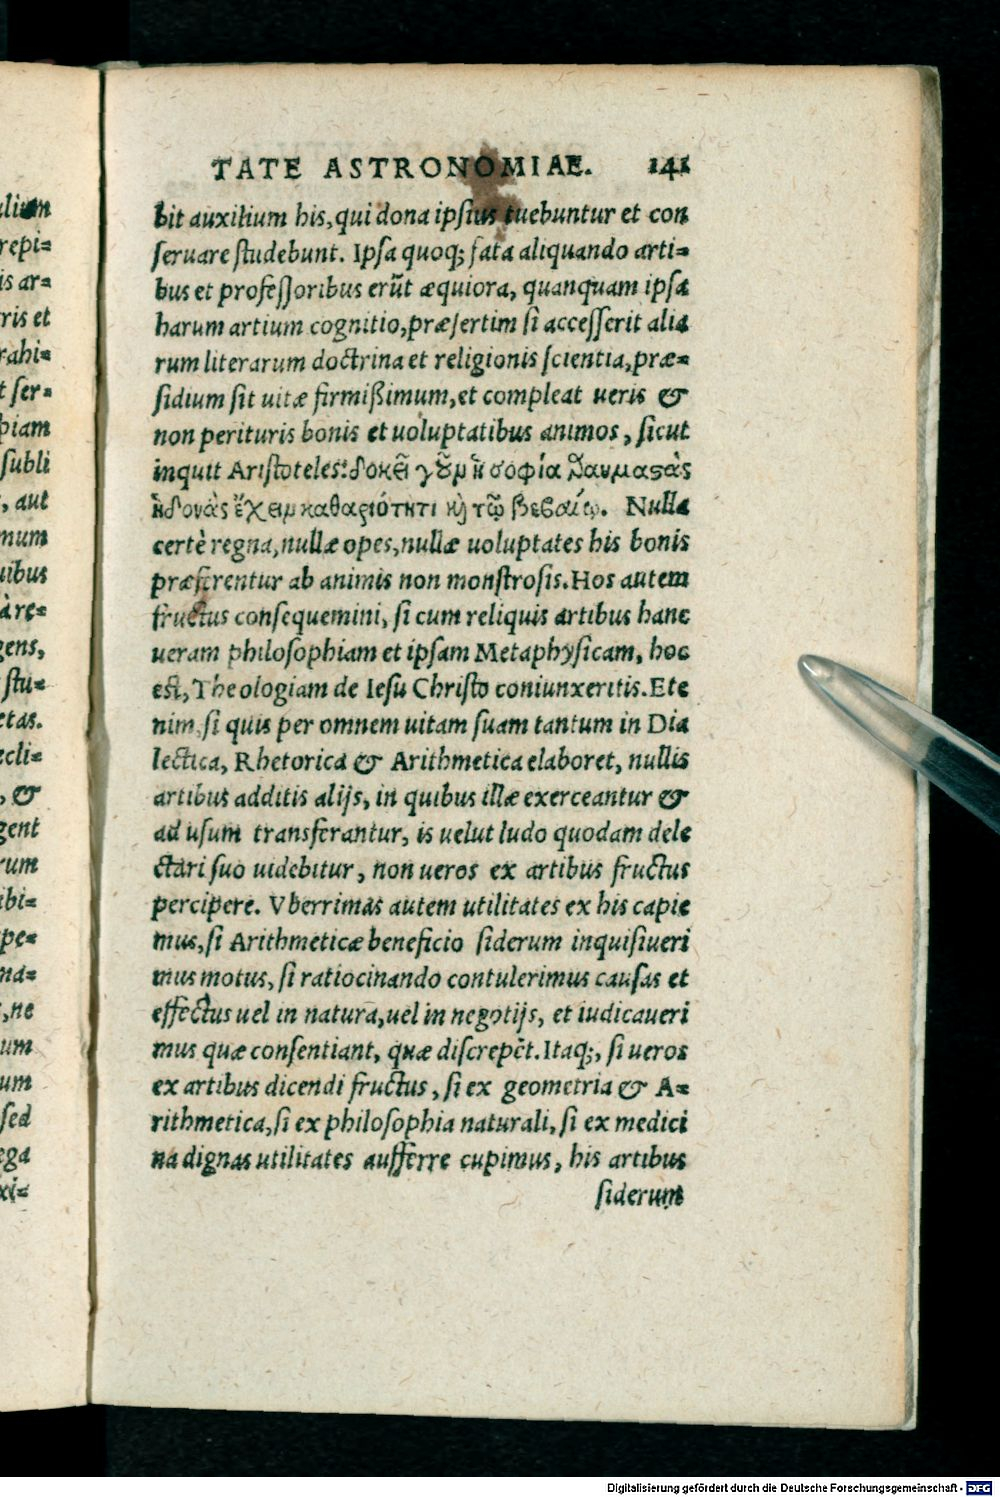 TATE ASTRONOMIAE. 141
bit auxilium his, qui dona ipsius tuebuntur et con
seruare studebunt. Ipsa quoq; fata aliquando arti-
bus et professoribus erũt æquiora, quanquam ipsa
harum artium cognitio, præsertim si accesserit alia
rum literarum doctrina et religionis scientia, præ-
sidium sit uitæ firmißimum, et compleat ueris &
non perituris bonis et uoluptatibus animos, sicut
inquit Aristoteles: δοκεῖ γοῦμ ἡ σοφία θαυμαςὰς
ἡδονὰς ἔχειμ καθαριότητι κỳ τῶ βεβαίῳ. Nulla
certè regna, nullæ opes, nullæ uoluptates his bonis
præferentur ab animis non monstrosis. Hos autem
fructus consequemini, si cum reliquis artibus hanc
ueram philosophiam et ipsam Metaphysicam, hoc
est, Theologiam de Iesu Christo coniunxeritis. Ete
nim, si quis per omnem uitam suam tantum in Dia
lectica, Rhetorica & Arithmetica elaboret, nullis
artibus additis alijs, in quibus illæ exerceantur &
ad usum transferantur, is uelut ludo quodam dele
ctari suo uidebitur, non ueros ex artibus fructus
percipere. Vberrimas autem utilitates ex his capie
mus, si Arithmeticæ beneficio siderum inquisiueri
mus motus, si ratiocinando contulerimus causas et
effectus uel in natura, uel in negotijs, et iudicaueri
mus quæ consentiant, quæ discrepẽt. Itaq;, si ueros
ex artibus dicendi fructus, si ex geometria & A-
rithmetica, si ex philosophia naturali, si ex medici
na dignas utilitates aufferre cupimus, his artibus
siderum
repi-
is ar-
ris et
rahi-
t ser-
piam
subli
, aut
mum
uibus
à re-
gens,
stu-
etas.
ecli-
, &
gent
rum
ibi-
pe-
na-
, ne
um
um
sed
ega
xi-
Digitalisierung gefördert durch die Deutsche Forschungsgemeinschaft - DFG